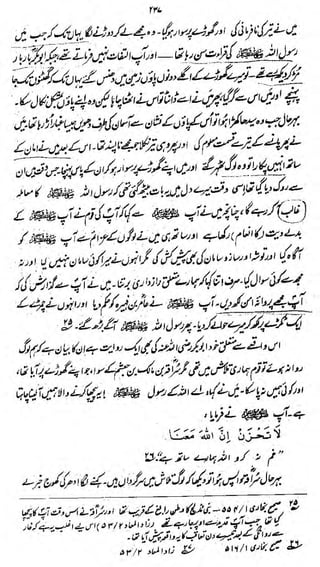 ۲۳۷
میں نے تیر کی نافرمانی کی اور گھوڑے پر سوار ہو گیا۔ وہ مجھے لے کر دوڑنے لگا یہاں تک کہ جب میں
رسول اللہ ﷺ کی قراءت سن رہا تھا — اور آپ التفات نہیں فرماتے تھے جبکہ ابوبکرؓ بار بار
مڑ کر دیکھ رہے تھے — تو میرے گھوڑے کے اگلے دونوں پاؤں زمین میں دھنس گئے یہاں تک کہ گھٹنوں تک جا
پہنچے اور میں اس سے گر گیا پھر میں نے اسے ڈانٹا تو اس نے اٹھنا چاہا لیکن وہ اپنے پاؤں بمشکل نکال سکا۔
بہرحال جب وہ سیدھا کھڑا ہوا تو اس کے پاؤں کے نشان سے آسمان کی طرف دھویں جیسا غبار اڑ رہا تھا، میں
نے پھر پانسے کے تیر سے قسمت معلوم کی اور پھر وہی تیر نکلا جو مجھے ناپسند تھا۔ اس کے بعد میں نے امان کے
ساتھ انہیں پکارا تو وہ لوگ ٹھہر گئے اور میں اپنے گھوڑے پر سوار ہو کر ان کے پاس پہنچا۔ جس وقت میں ان
سے روک دیا گیا تھا اسی وقت میرے دل میں یہ بات بیٹھ گئی تھی کہ رسول اللہ ﷺ کا معاملہ
غالب آ کر رہے گا چنانچہ میں نے آپ ﷺ سے کہا کہ آپ کی قوم نے آپ ﷺ کے
بدلے دیت کا انعام رکھا ہے اور ساتھ ہی میں نے لوگوں کے عزائم سے آپ ﷺ کو
آگاہ کیا اور توشہ اور ساز و سامان کی بھی پیش کش کی مگر انہوں نے میرا کوئی سامان نہیں لیا اور نہ
مجھ سے کوئی سوال کیا۔ صرف اتنا کہا کہ ہمارے متعلق رازداری برتنا۔ میں نے آپؐ سے گزارش کی کہ
آپؐ مجھے پروانۂ امن لکھ دیں۔ آپ ﷺ نے عامر بن فہیرہ کو حکم دیا اور انہوں نے چمڑے کے
ایک ٹکڑے پر لکھ کر میرے حوالے کر دیا۔ پھر رسول اللہ ﷺ آگے بڑھ گئے۔ ۲۵
اس واقعے سے متعلق خود ابوبکر رضی اللہ عنہ کی بھی ایک روایت ہے ان کا بیان ہے کہ ہم لوگ
روانہ ہوئے تو قوم ہماری تلاش میں تھی مگر سراقہ بن مالک بن جعشم کے سوا، جو اپنے گھوڑے پر آیا تھا،
اور کوئی ہمیں نہ پا سکا۔ میں نے کہا، اے اللہ کے رسول ﷺ یہ پیچھا کرنے والا ہمیں آ لینا چاہتا
ہے۔ آپ ﷺ نے فرمایا:
لَا تَحْزَنْ إِنَّ اللّٰهَ مَعَنَا
"غم نہ کرو اللہ ہمارے ساتھ ہے۔" ۲۶
بہرحال سراقہ واپس ہوا تو دیکھا کہ لوگ تلاش میں سرگرداں ہیں۔ کہنے لگا ادھر کی کھوج خبر لے
۲۵ صحیح بخاری ۱/۵۵۴ — بنی مدلج کا وطن رابغ کے قریب تھا اور سراقہ نے اس وقت آپ کا پیچھا
کیا تھا جب آپؐ قدید سے اوپر جا رہے تھے زاد المعاد ۲/۵۳ اس لیے اغلب یہ ہے کہ غار
سے روانگی کے بعد تیسرے دن تعاقب کا یہ واقعہ پیش آیا تھا۔
۲۶ صحیح بخاری ۱/۵۱۶ زاد المعاد ۲/۵۳